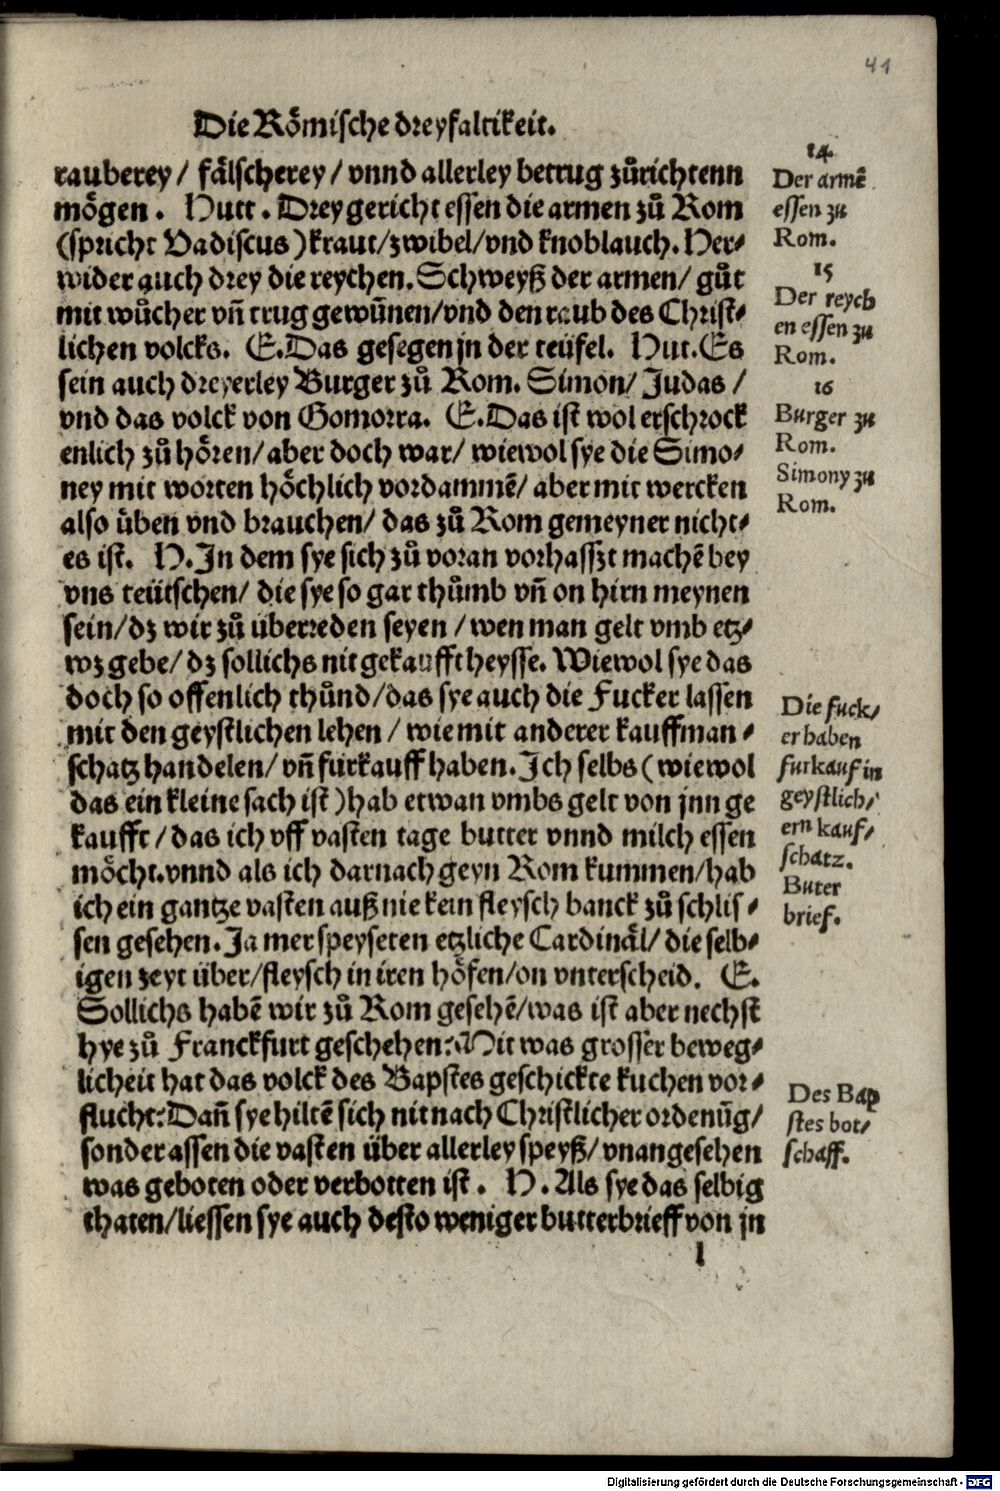 41
Die Roͤmische dreyfaltikeit.
rauberey / faͤlscherey / vnnd allerley betrug zuͦrichtenn
moͤgen . Hutt . Drey gericht essen die armen zuͦ Rom
(spricht Vadiscus) kraut/zwibel/vnd knoblauch. Her⸗
wider auch drey die reychen. Schweyß der armen/ guͦt
mit wuͦcher vn̄ trug gewuͦnen/vnd den raub des Christ⸗
lichen volcks. E. Das gesegen jn der teüfel. Hut. Es
sein auch dreyerley Burger zuͦ Rom. Simon/ Judas /
vnd das volck von Gomorra. E. Das ist wol erschrock
enlich zuͦ hoͤren/ aber doch war/ wiewol sye die Simo⸗
ney mit worten hoͤchlich vordammē/ aber mit wercken
also uͤben vnd brauchen/ das zuͦ Rom gemeyner nicht⸗
es ist. H. In dem sye sich zuͦ voran vorhasszt machē bey
vns teütschen/ die sye so gar thuͦmb vn̄ on hirn meynen
sein/dz wir zuͦ überreden seyen / wen man gelt vmb etz⸗
wz gebe/ dz sollichs nit gekaufft heysse. Wiewol sye das
doch so offenlich thuͦnd/das sye auch die Fucker lassen
mit den geystlichen lehen / wie mit anderer kauffman⸗
schatz handelen/ vn̄ fürkauff haben. Ich selbs (wiewol
das ein kleine sach ist) hab etwan vmbs gelt von jnn ge
kaufft / das ich vff vasten tage butter vnnd milch essen
moͤcht. vnnd als ich darnach geyn Rom kummen/hab
ich ein gantze vasten auß nie kein fleysch banck zuͦ schlis⸗
sen gesehen. Ja mer speyseten etzliche Cardinaͤl/ die selb⸗
igen zeyt über/fleysch in iren hoͤfen/on vnterscheid. E.
Sollichs habē wir zuͦ Rom gesehē/was ist aber nechst
hye zuͦ Franckfurt geschehen? Mit was grosser beweg⸗
licheit hat das volck des Bapstes geschickte kuchen vor⸗
flucht? Dan̄ sye hiltē sich nit nach Christlicher ordenūg/
sonder assen die vasten über allerley speyß/ vnangesehen
was geboten oder verbotten ist . H . Als sye das selbig
thaten/liessen sye auch desto weniger butterbrieff von jn
l
14
Der armē
essen zu
Rom.
15
Der reych
en essen zu
Rom.
16
Burger zu
Rom.
Simony zu
Rom.
Die fuck⸗
er haben
furkauf in
geystlich⸗
ern kauf⸗
schatz.
Buter
brief.
Des Bap
stes bot⸗
schaff.
Digitalisierung gefördert durch die Deutsche Forschungsgemeinschaft - DFG